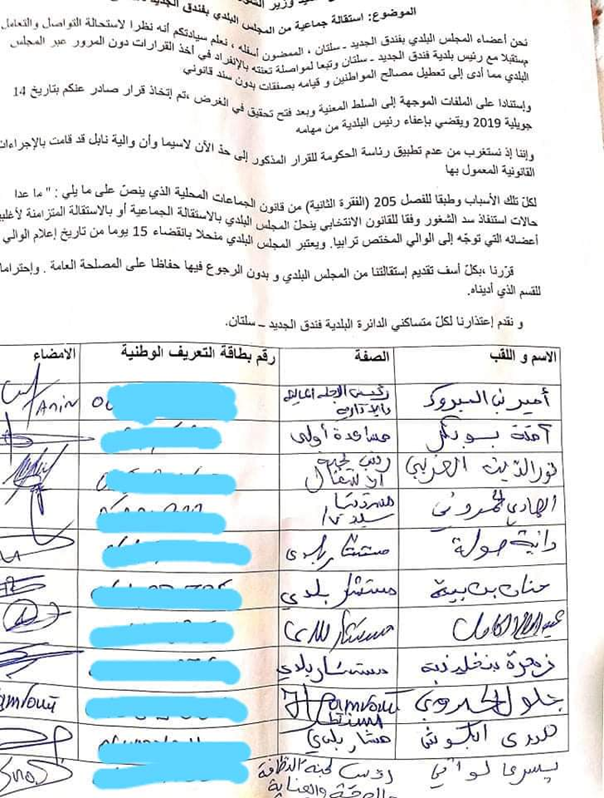 وزير الشؤون
الموضوع: استقالة جماعية من المجلس البلدي بفندق الجديد
نحن أعضاء المجلس البلدي بفندق الجديد ـ سلتان ، الممضون أسفله ، نعلم سيادتكم أنه نظرا لاستحالة التواصل والتعامل
مستقبلا مع رئيس بلدية فندق الجديد ـ سلتان وتبعا لمواصلة تعنته بالإنفراد في أخذ القرارات دون المرور عبر المجلس
البلدي مما أدى إلى تعطيل مصالح المواطنين و قيامه بصفقات بدون سند قانوني
وإستنادا على الملفات الموجهة إلى السلط المعنية وبعد فتح تحقيق في الغرض ،تم إتخاذ قرار صادر عنكم بتاريخ 14
جويلية 2019 ويقضي بإعفاء رئيس البلدية من مهامه
وإننا إذ نستغرب من عدم تطبيق رئاسة الحكومة للقرار المذكور إلى حد الآن لاسيما وأن والية نابل قد قامت بالإجراءات
القانونية المعمول بها
لكلّ تلك الأسباب وطبقا للفصل 205 (الفقرة الثانية) من قانون الجماعات المحلية الذي ينصّ على ما يلي : " ما عدا
حالات استنفاذ سد الشغور وفقا للقانون الانتخابي ينحلّ المجلس البلدي بالاستقالة الجماعية أو بالاستقالة المتزامنة لأغلبية
أعضائه التي توجّه إلى الوالي المختص ترابيا. ويعتبر المجلس البلدي منحلا بانقضاء 15 يوما من تاريخ إعلام الوالي
قرّرنا ،بكلّ أسف تقديم إستقالتنا من المجلس البلدي و بدون الرجوع فيها حفاظا على المصلحة العامة . وإحتراما
للقسم الذي أديناه.
و نقدم إعتذارنا لكلّ متساكني الدائرة البلدية فندق الجديد ــ سلتان.
الاسم و اللقب الصفة رقم بطاقة التعريف الوطنية الامضاء
أميرة بن المبروك رئيس اللجنة المالية والإدارية Amin
آمنة بسوبكر مساعدة أولى
نورالدين العزيبي رئيس لجنة الأشغال
الهادي الحمروني
دانية صولة مستشار بلدي
حنان بن بية مستشار بلدي
مستشار بلدي
زهرة مستشار بلدي
جلول الحمروني Hamrouni
هدى مستشار بلدي
يسرى لواتي رئيس لجنة النظافة والصحة والعناية